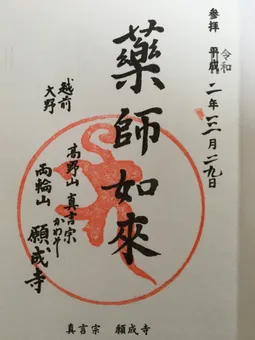 参拝 平成 二年三月二九日
令和
藥師如來
越前
大野
高野山 真言宗
かわそ
両輪山 願成寺
真言宗 願成寺